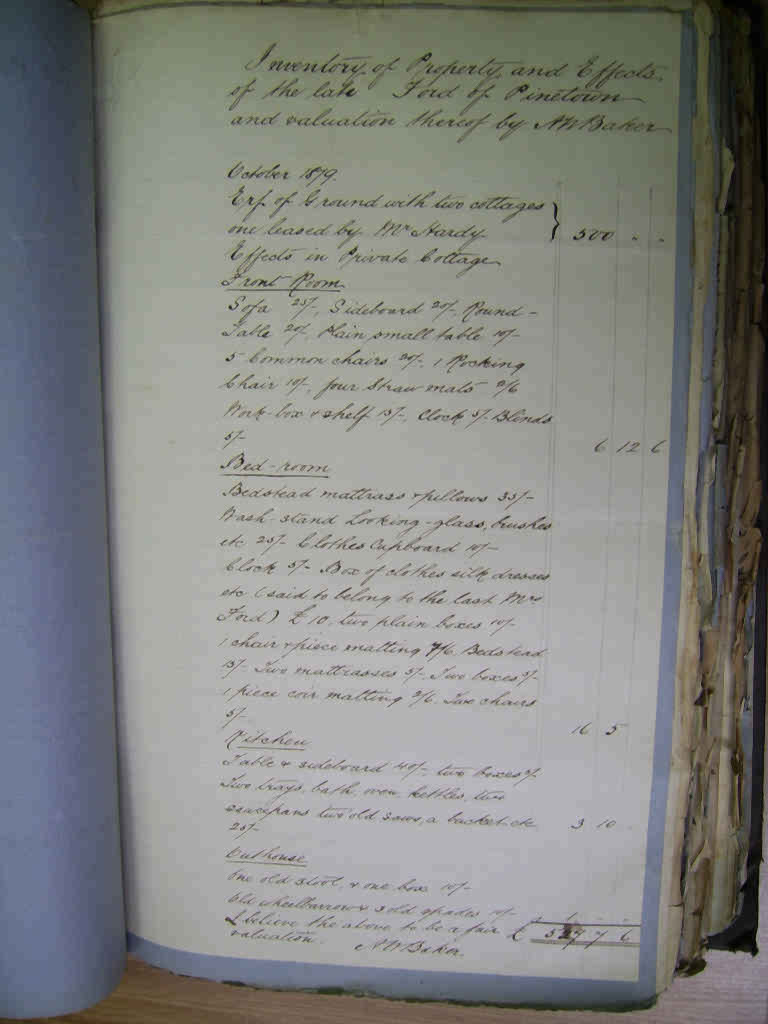 Inventory of Property and Effects
of the late Ford of Pinetown
and valuation thereof by AWBaker
October 1879.
Erf of Ground with two cottages
one leased by Mr Hardy } 500 " "
Effects in Private Cottage
Front Room
Sofa 25/-, Sideboard 20/-, Round-
Table 20/- Plain small table 10/-
5 Common chairs 20/-, 1 Rocking
Chair 10/-, four Straw mats 2/6
Work-box & shelf 15/-, Clock 5/- Blinds
5/- 6 12 6
Bed-room
Bedstead mattrass & pillows 35/-
Wash-stand Looking-glass, brushes
etc 25/- Clothes Cupboard 10/-
Clock 5/- Box of clothes silk dresses
etc (said to belong to the last Mrs
Ford) £10, two plain boxes 10/-
1 chair & piece matting 7/6. Bedstead
15/- Two mattrasses 5/- Two boxes 5/-
1 piece coir matting 2/6. Two chairs
5/- 16 5
Kitchen
Table & sideboard 40/-, two boxes 5/-
Two trays, bath, oven, kettles, two
saucepans two old saws, a bucket etc
25/- 3 10 -
Outhouse
One old stool, & one box 10/-
Old wheelbarrow & 3 old spades 10/- 1 - -
I believe the above to be a fair £ 527 7 6
valuation. AWBaker.